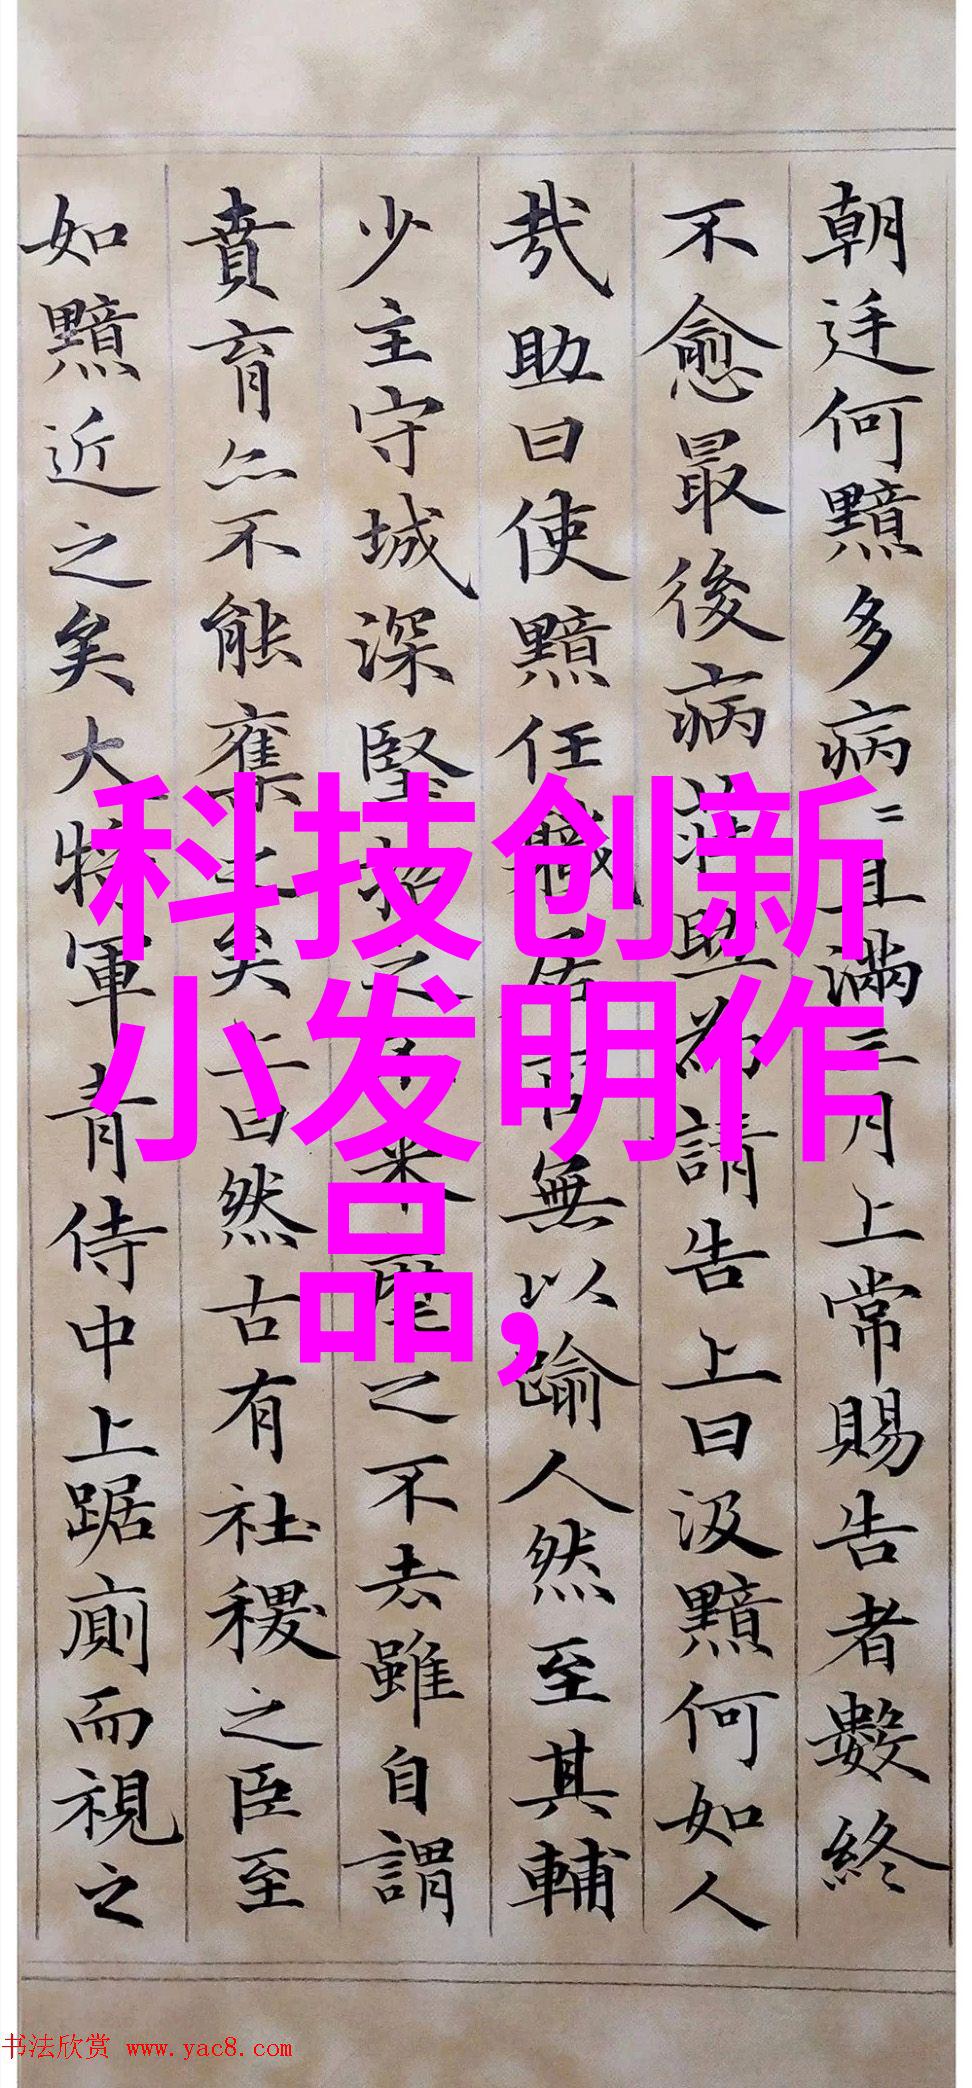 朝廷何黯多病二且滿三月上常賜告者數終
不愈最後病莊助為請告上曰汲黯何如人
哉助曰使黯任職居官無以踰人然至其輔
少主守城深堅招之不來麾之不去雖自謂
賁育亦不能奪之矣上曰然古有社稷之臣至
如黯近之矣大將軍青侍中上踞廁而視之
科技创新
小发明作
品,
书法欣赏 www.yac8.com